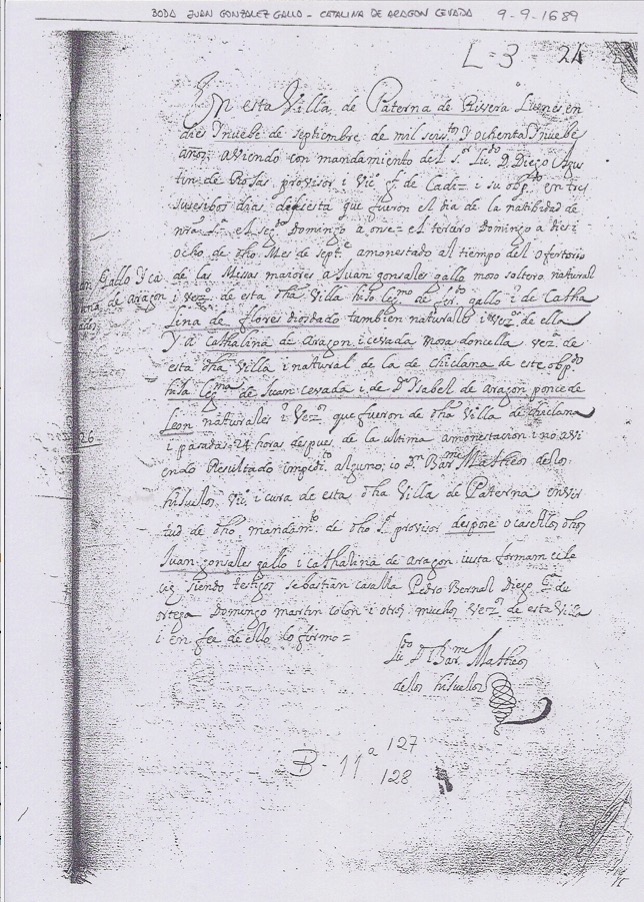 BODA JUAN GONZALEZ GALLO - CATALINA DE ARAGON CEVADA 9-9-1689
L=3- 24
En esta Villa de Paterna de Rivera Lunes en
dies i nuebe de septiembre de mil seis.tos y ochenta i nuebe
años; aviendo con mandamiento del S.r Lic.do D. Diego Agus
tin de Rosas provisor i Vic.o g.l de Cadiz i su obp.do en tres
dias defiesta que fueron el dia de la natibidad de
nra S.ra el seg.do Domingo a onse= el tersero Domingo a diesi
ocho de dho Mes de sept.e amonestado al tiempo del ofertorio
Gallo y ca de las Missas maiores a Juan gonsales gallo moso soltero natural
de aragon i vez.o de esta dha Villa hijo leg.mo de fer.do gallo i de Catha
lina de flores diordado tambien naturales i vez.os de ella
y a Cathalina de Aragon i cevada mosa donsella vez.a de
esta dha villa i natural de la de chiclana de este obp.do
hija leg.ma de Juan Cevada i de D.a Isabel de aragon ponce de
Leon naturales i vez.os que fueron de dha Villa de chiclana
26 i pasadas 24 horas despues de la ultima amonestacion i no avi
endo Resultado impedi.to alguno; io D.n Bar.me Matheos de los
hisuelos Vic.o i cura de esta dha Villa de Paterna en vir
tud de dho mandam.to de dho S.r provisor despose o case los dhos
Juan gonsales gallo i cathalina de aragon iusta formam
siendo testigos sebastian casalla Pedro Bernal Diego G.a de
ortega Domingo martin colon i otros muchos vez.os de esta Villa
i en fee de ello lo firmo=
Lic.do D Bar.me Matheos
de los hisuelos
B-11ª 127
128